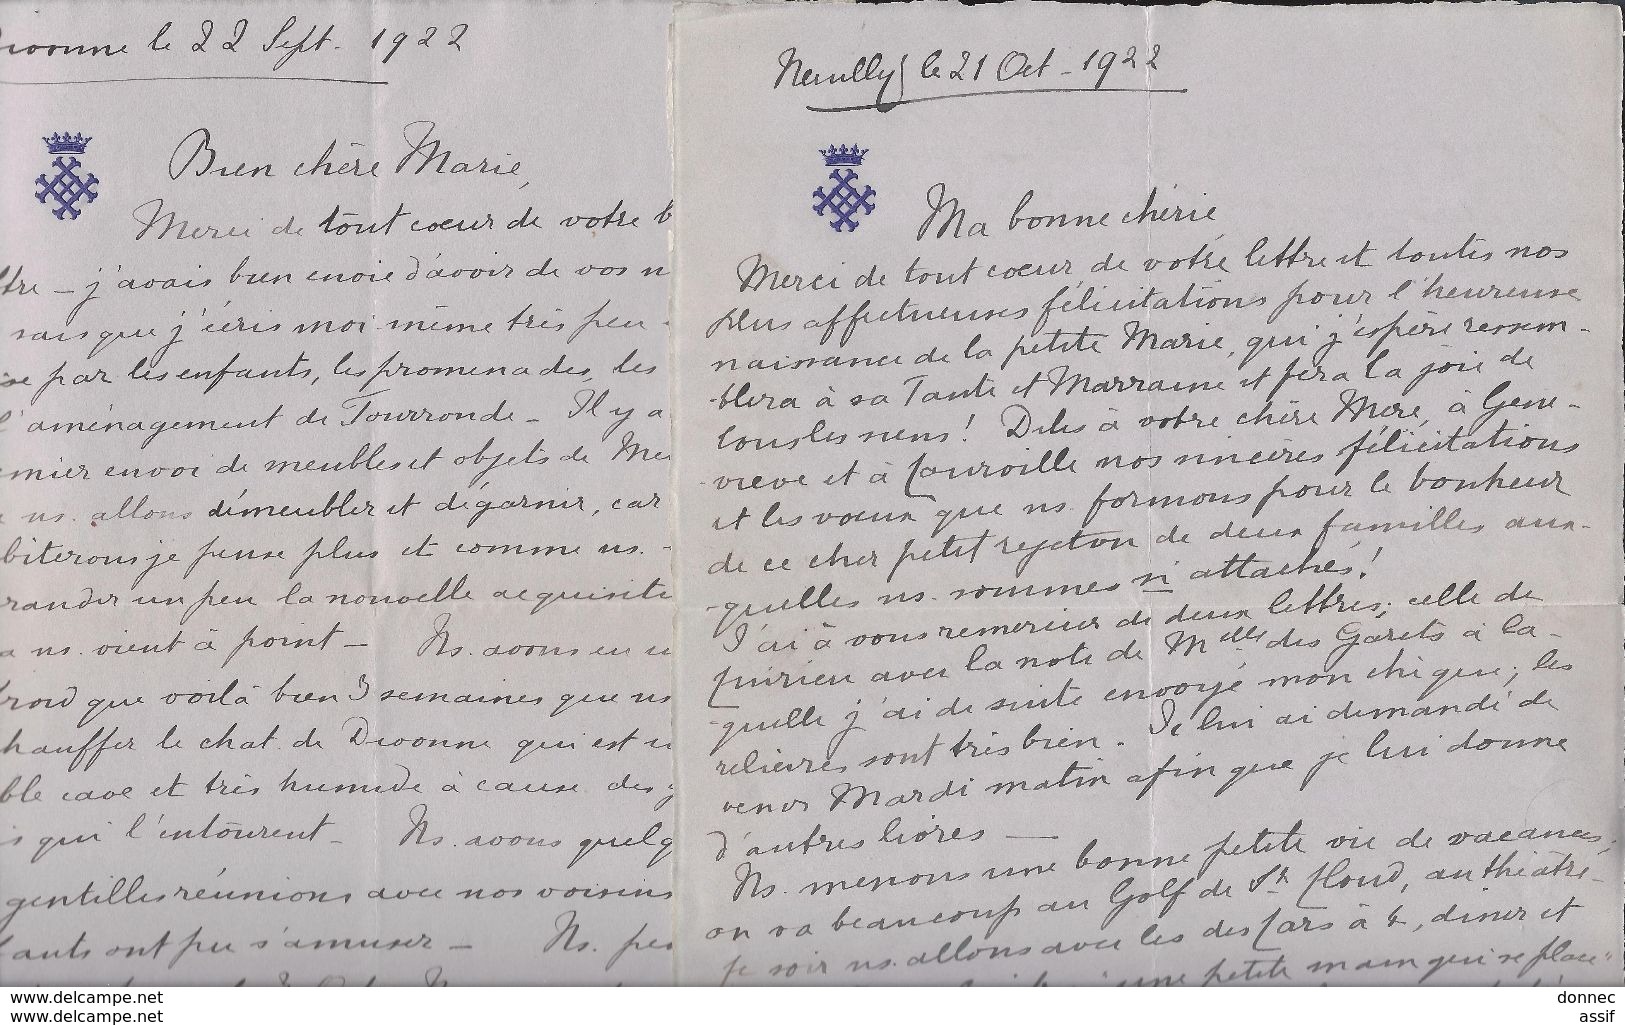 le 22 Sept. 1922
Bien chère Marie,
Merci de tout cœur de votre b
ttre - j'avais bien envie d'avoir de vos n
sais que j'écris moi-même très peu
se par les enfants, les promenades, les
l'aménagement de Tourronde - Il y a
mier envoi de meubles et objets de Meu
ns. allons démeubler et dégarnir, car
biterons je pense plus et comme ns.
randir un peu la nouvelle acquisite
a ns. vient à point - Ns. avons eu u
roid que voilà bien 3 semaines que ns
hauffer le chat. de Divonne qui est u
ble cave et très humide à cause des
s qui l'entourent - Ns. avons quelq
gentilles réunions avec nos voisins
fants ont pu s'amuser - Ns. pen
Neuilly le 21 Oct - 1922
Ma bonne chérie,
Merci de tout cœur de votre lettre et toutes nos
plus affectueuses félicitations pour l'heureuse
naissance de la petite Marie, qui j'espère ressem-
-blera à sa Tante et Marraine et fera la joie de
tous les siens! Dites à votre chère Mère, à Gene-
-vieve et à nos sincères félicitations
et les vœux que ns. formons pour le bonheur
de ce cher petit rejeton de deux familles aux-
-quelles ns. sommes si attachés!
J'ai à vous remercier de deux lettres; celle de
avec la note de Melles des Garets à la-
-quelle j'ai de suite envoyé mon chèque; les
reliures sont très bien. Je lui ai demandé de
venir Mardi matin afin que je lui donne
d'autres livres -
Ns. menons une bonne petite vie de vacances;
on va beaucoup au Golf de St. Cloud, au théâtre -
ce soir ns. allons avec les des Cars à 4, diner et
une petite main qui se place
www.delcampe.net
donnec
www.delcampe.com
assif